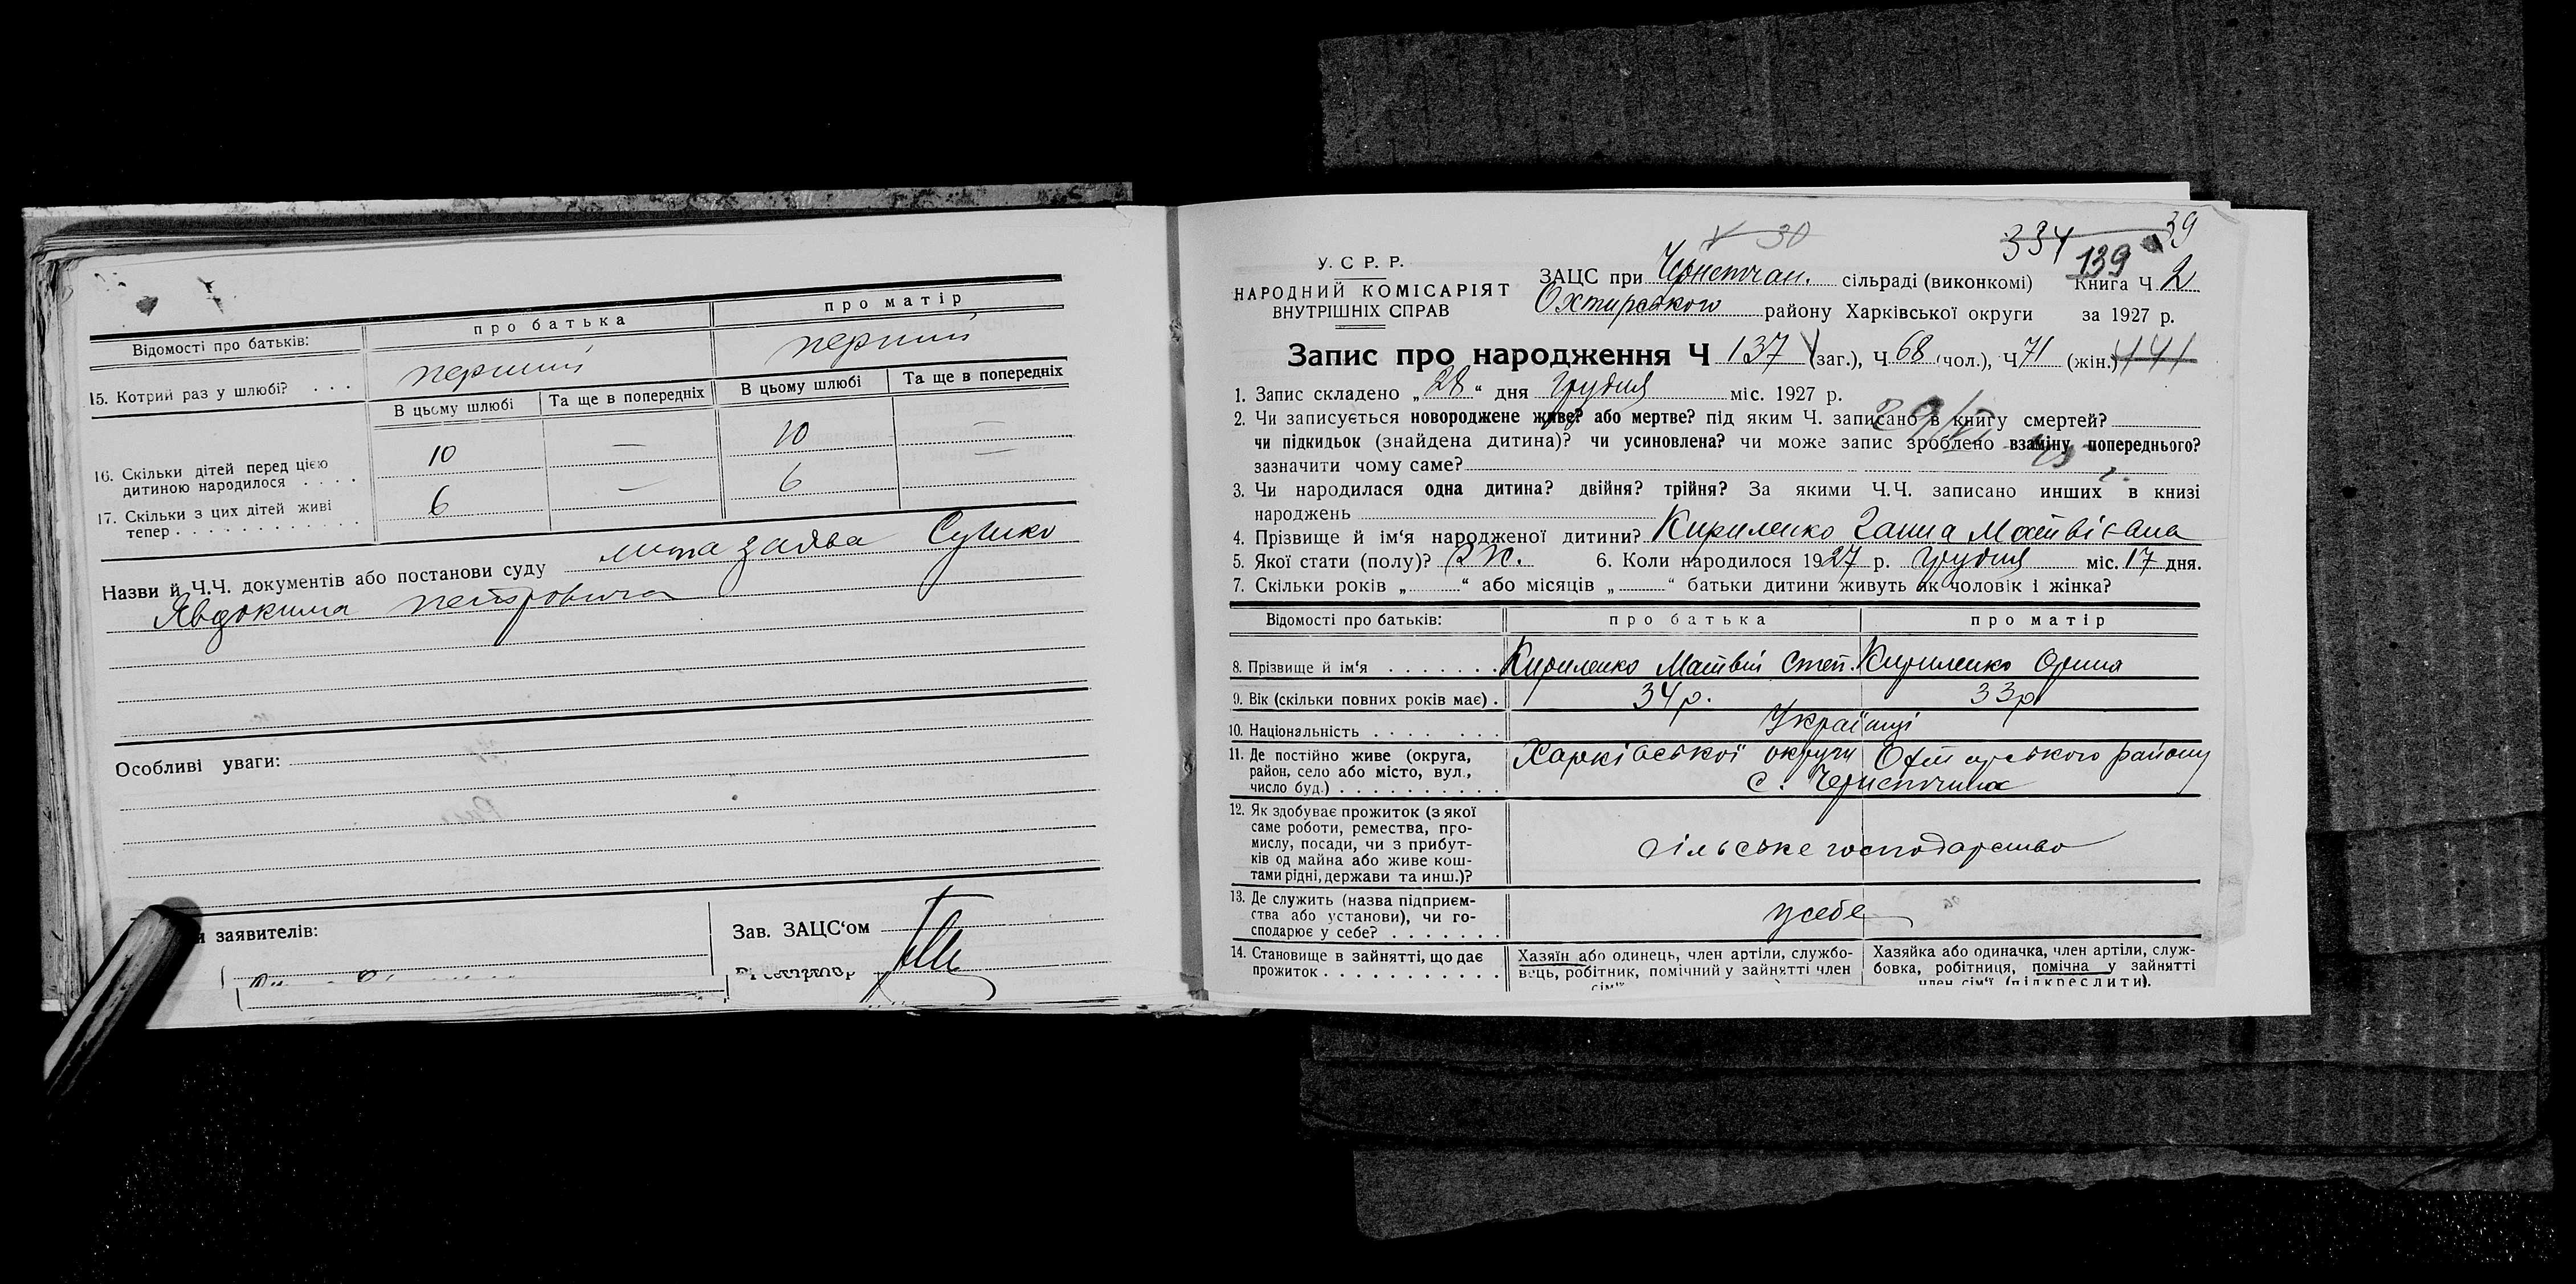 Відомості про батьків:
про батька
про матір
15. Котрий раз у шлюбі? . . .
перший
перший
В цьому шлюбі
Та ще в попередніх
В цьому шлюбі
Та ще в попередніх
16. Скільки дітей перед цією
дитиною народилося . . . .
10
—
10
—
17. Скільки з цих дітей живі
тепер . . . . . . . . . . . .
6
—
6
—
Назви й Ч.Ч. документів або постанови суду
заява Сушко
Явдокима Петровича
Особливі уваги:
заявителів:
Зав. ЗАЦС'ом
30
334
39
139
У. С Р. Р.
НАРОДНИЙ КОМІСАРІЯТ
ВНУТРІШНІХ СПРАВ
ЗАЦС при Чернетчан. сільраді (виконкомі) Книга Ч 2
Охтирського району Харківської округи за 1927 р.
Запис про народження Ч 137 (заг.), Ч 68 (чол.), Ч 71 (жін.) 141
1. Запис складено „28“ дня грудня міс. 1927 р.
2. Чи записується новороджене живе? або мертве? під яким Ч. записано в книгу смертей?
чи підкидьок (знайдена дитина)? чи усиновлена? чи може запис зроблено взаміну попереднього?
зазначити чому саме?
3. Чи народилася одна дитина? двійня? трійня? За якими Ч.Ч. записано инших в книзі
народжень
4. Прізвище й ім'я народженої дитини? Кириленко Ганна Матвієвна
5. Якої стати (полу)? ж. 6. Коли народилося 1927 р. грудня міс. 17 дня.
7. Скільки років „ “ або місяців „ “ батьки дитини живуть як чоловік і жінка?
Відомості про батьків:
про батька
про матір
8. Прізвище й ім'я . . . . . . .
Кириленко Матвій Степ.
Кириленко Орина
9. Вік (скільки повних років має) .
34 р.
33 р
10. Національність . . . . . . .
Українці
11. Де постійно живе (округа,
район, село або місто, вул.,
число буд.) . . . . . . . . . .
Харківської округи Охтирського району
с. Чернетчина
12. Як здобуває прожиток (з якої
саме роботи, ремества, про-
мислу, посади, чи з прибут-
ків од майна або живе кош-
тами рідні, держави та инш.)?
сільське господарство
13. Де служить (назва підприєм-
ства або установи), чи го-
сподарює у себе? . . . . . . .
у себе
14. Становище в зайнятті, що дає
прожиток . . . . . . . . . . .
Хазяїн або одинець, член артіли, службо-
вець, робітник, помічний у зайнятті член
Хазяйка або одиначка, член артіли, служ-
бовка, робітниця, помічна у зайнятті
член сім'ї (підкреслити).